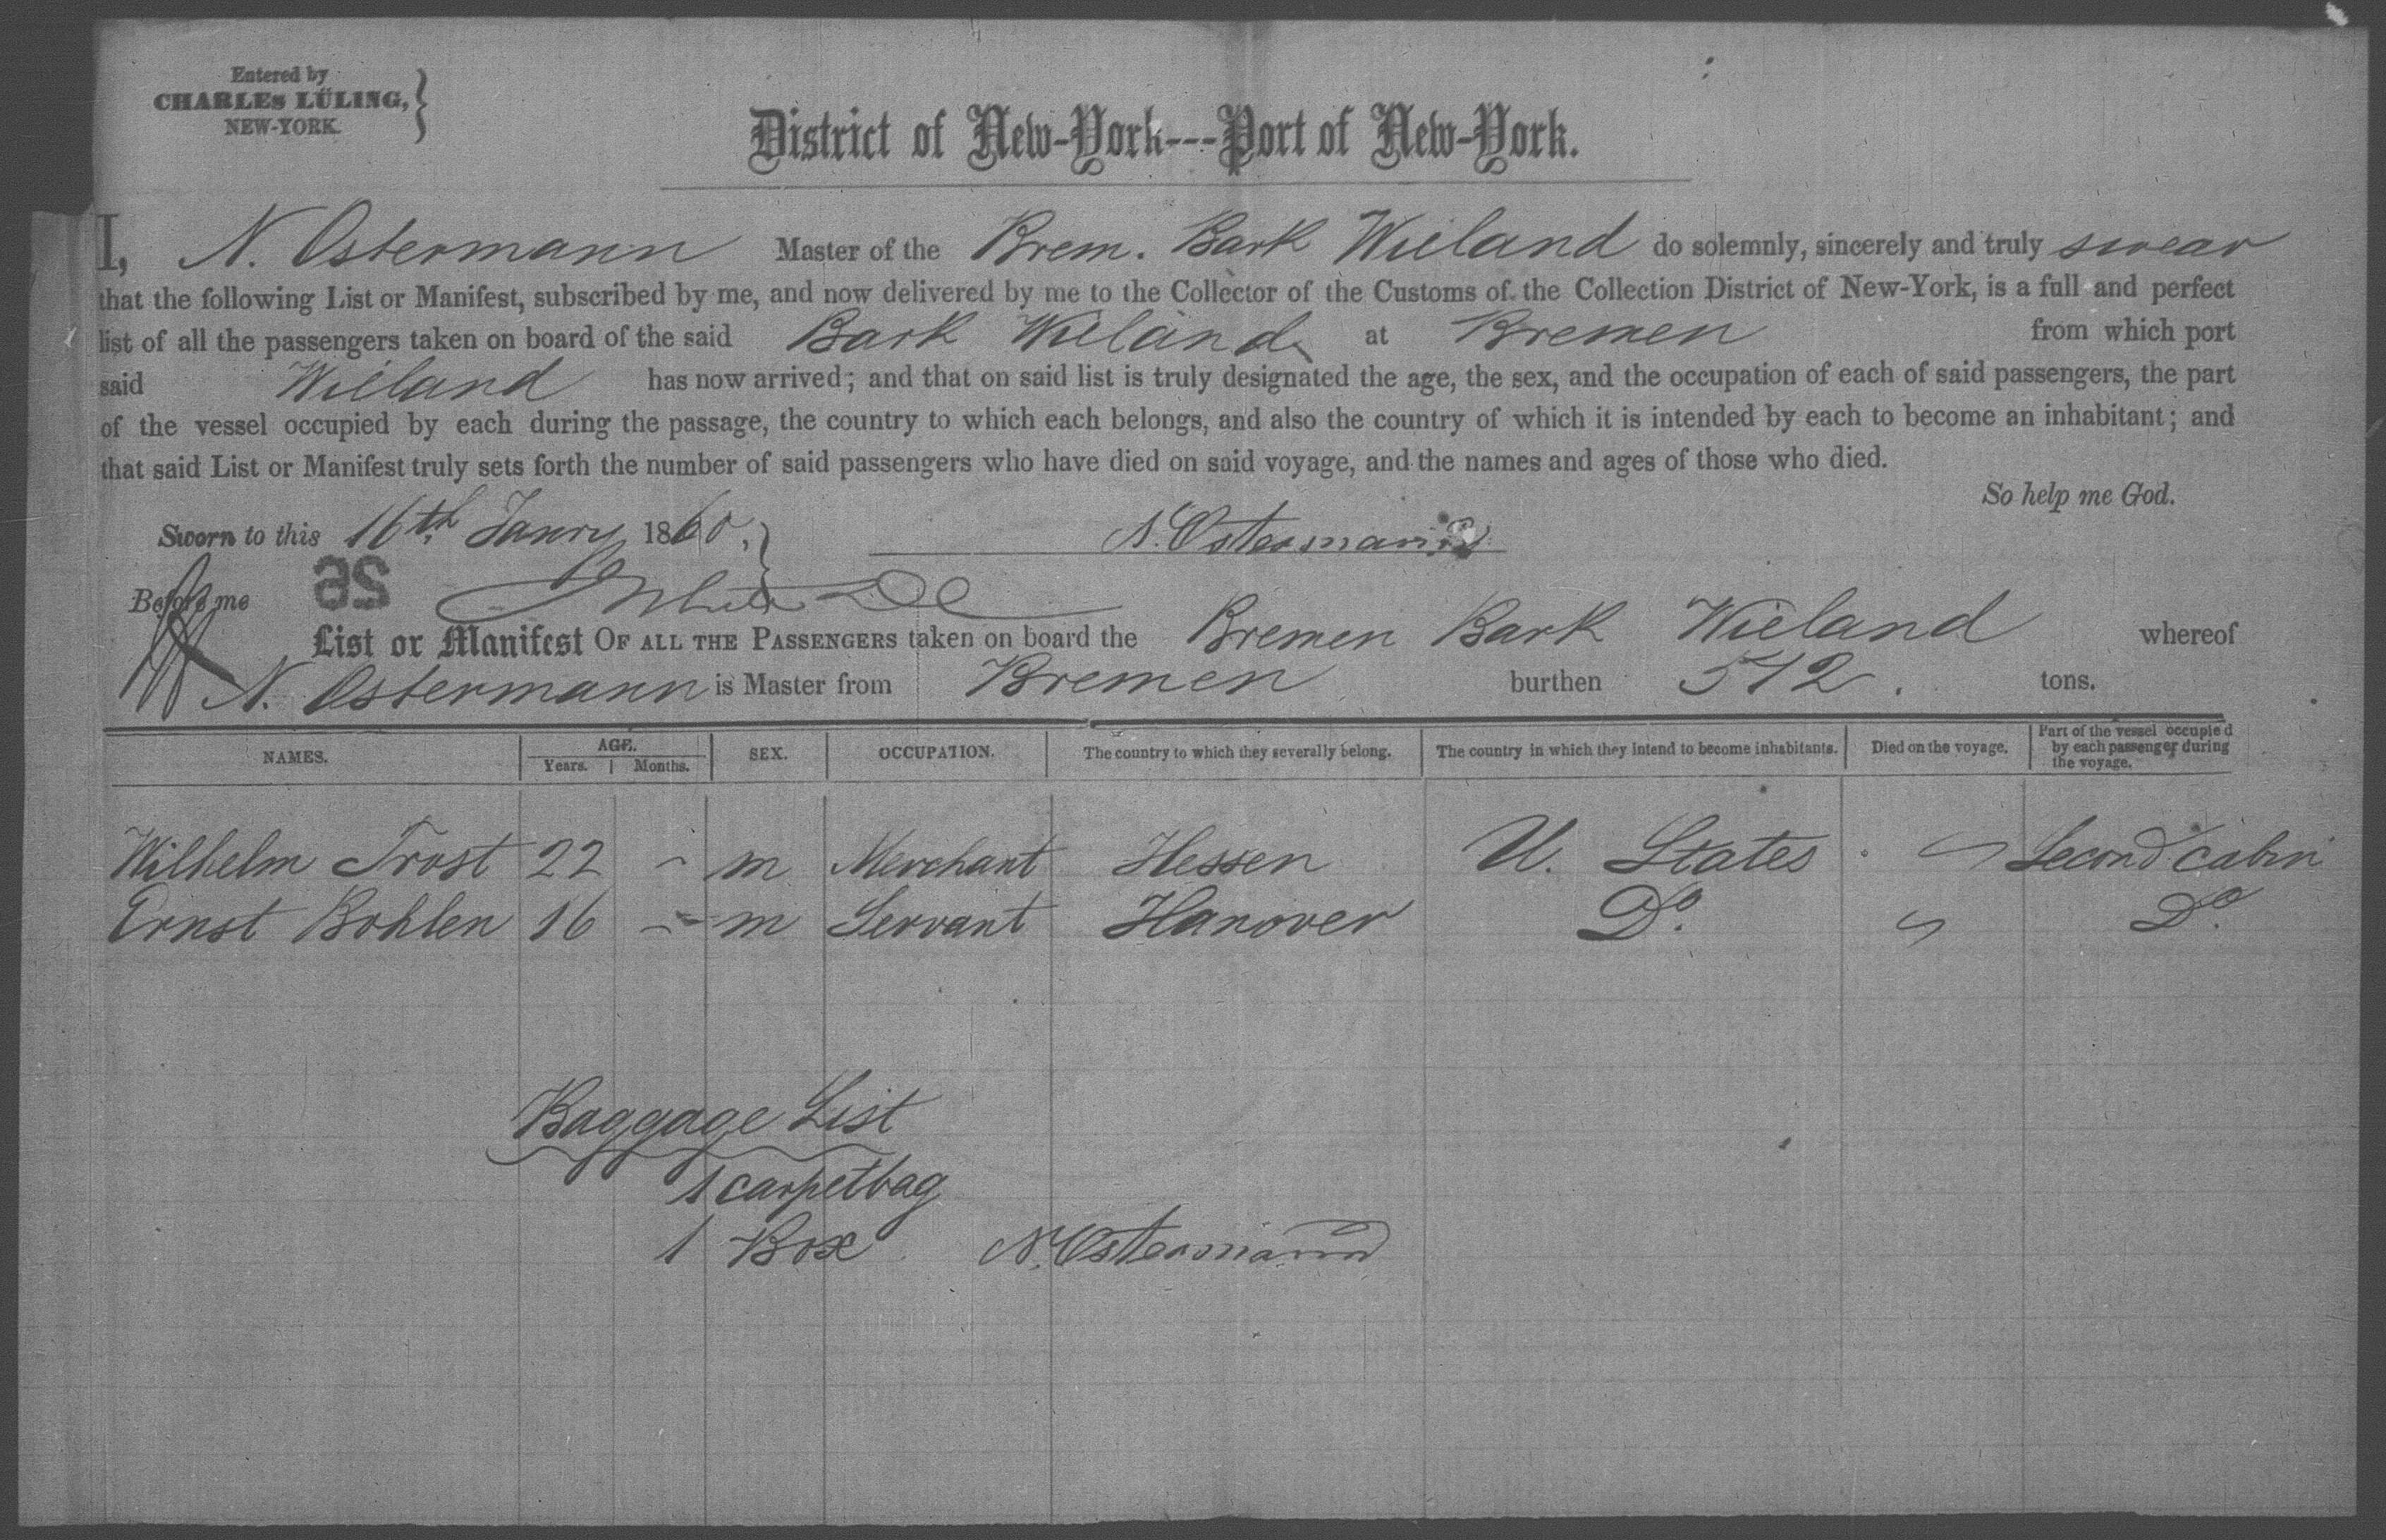 Entered by
CHARLES LÜLING,
NEW-YORK.
District of New-York---Port of New-York.
I, N. Ostermann Master of the Brem. Bark Wieland do solemnly, sincerely and truly swear
that the following List or Manifest, subscribed by me, and now delivered by me to the Collector of the Customs of the Collection District of New-York, is a full and perfect
list of all the passengers taken on board of the said Bark Wieland at Bremen from which port
said Wieland has now arrived; and that on said list is truly designated the age, the sex, and the occupation of each of said passengers, the part
of the vessel occupied by each during the passage, the country to which each belongs, and also the country of which it is intended by each to become an inhabitant; and
that said List or Manifest truly sets forth the number of said passengers who have died on said voyage, and the names and ages of those who died.
So help me God.
Sworn to this 16th Janry 1860, N. Ostermann
Before me 26
List or Manifest OF ALL THE PASSENGERS taken on board the Bremen Bark Wieland whereof
N. Ostermann is Master from Bremen burthen 512. tons.
NAMES. AGE. Years. Months. SEX. OCCUPATION. The country to which they severally belong. The country in which they intend to become inhabitants. Died on the voyage. Part of the vessel occupied by each passenger during the voyage.
Wilhelm Trost 22 - m Merchant Hessen U. States Second cabin
Ernst Bohlen 16 - m Servant Hanover Do. Do.
Baggage List
1 carpetbag
1 Box N. Ostermann